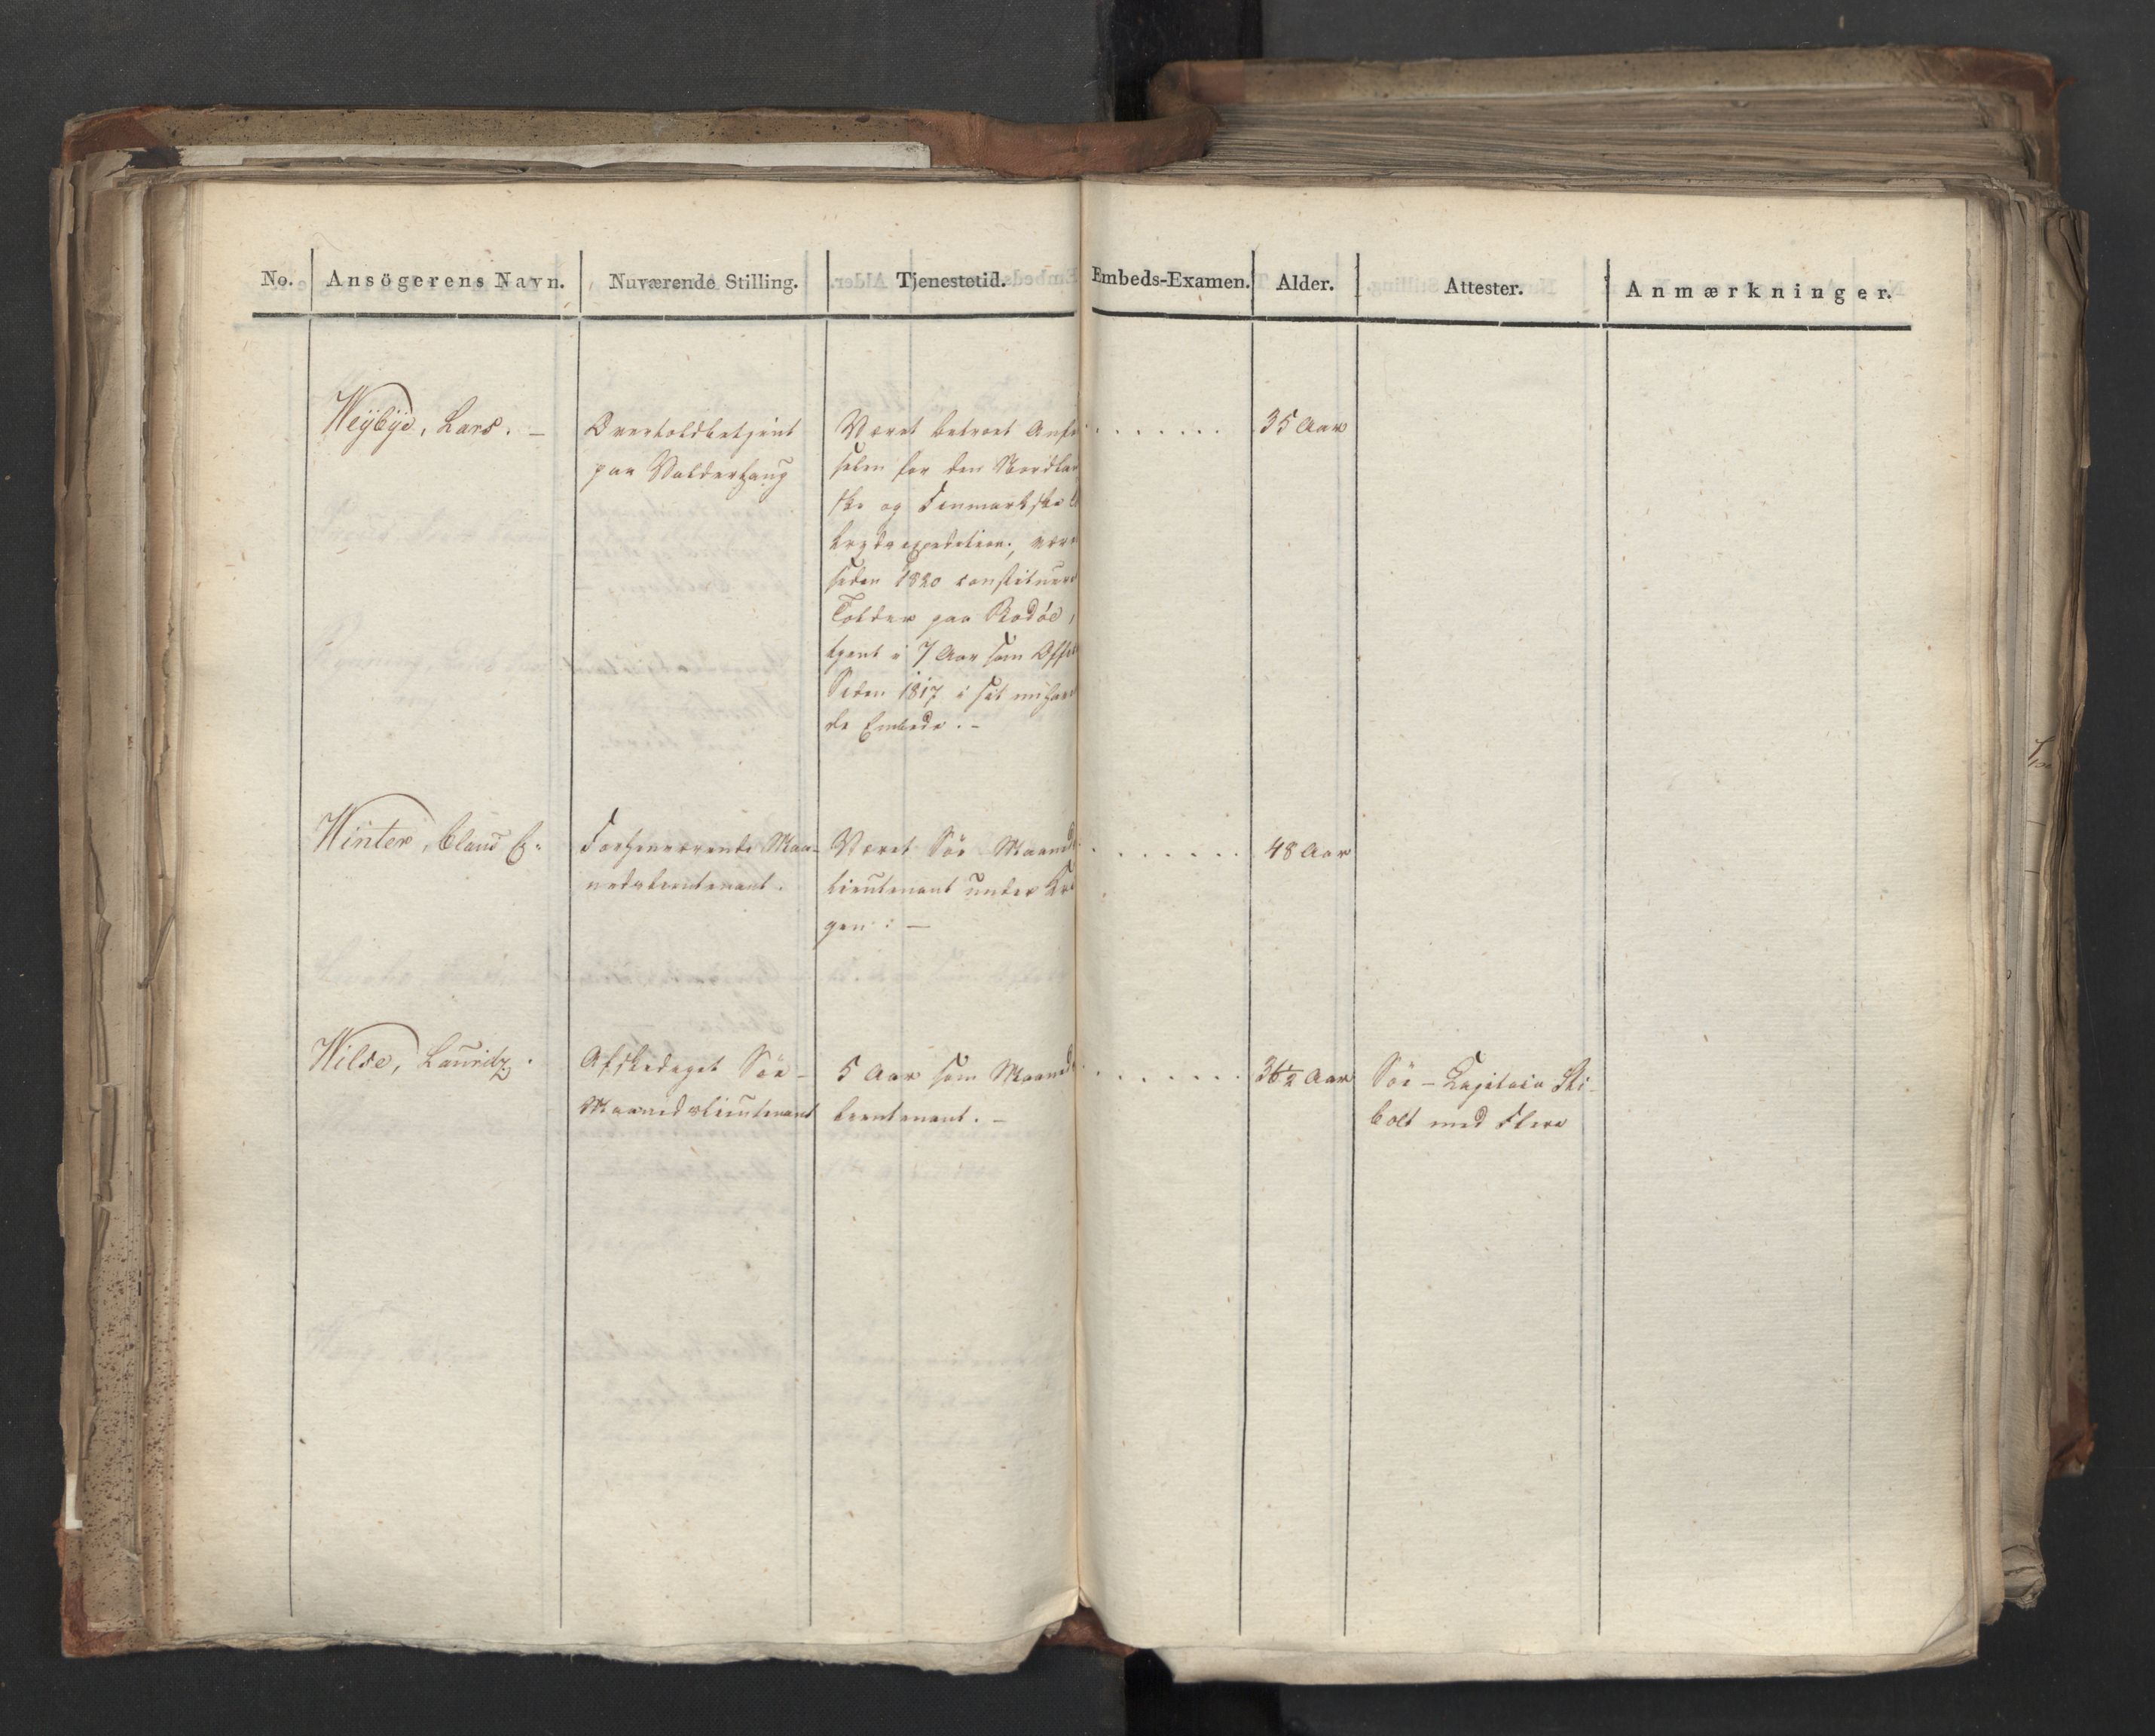 No. Ansögerens Navn. Nuværende Stilling. Tjenestetid. Embeds-Examen. Alder. Attester. Anmærkninger.
Weÿbÿe, Lars. –
Overtoldbetjent
paa Valderhaug
Været betroet
for den Nordlan
ske og Finmarkske
expedition, være
siden 1820 constituere
Tolder paa Bodöe,
tjent i 7 Aar som Offi
Siden 1817 i sit nuhave
de Embede. –
35 Aar
Winter, Claus
Forhenværende Maa-
nedslieutenant.
Været Söe Maaneds
lieutenant under Kri
gen. –
48 Aar
Wilse, Lauridz.
Afskediget Söe-
Maanedslieutenant
5 Aar som Maaneds
lieutenant. –
36½ Aar
Söe-Capitain Sti-
bolt med Flere